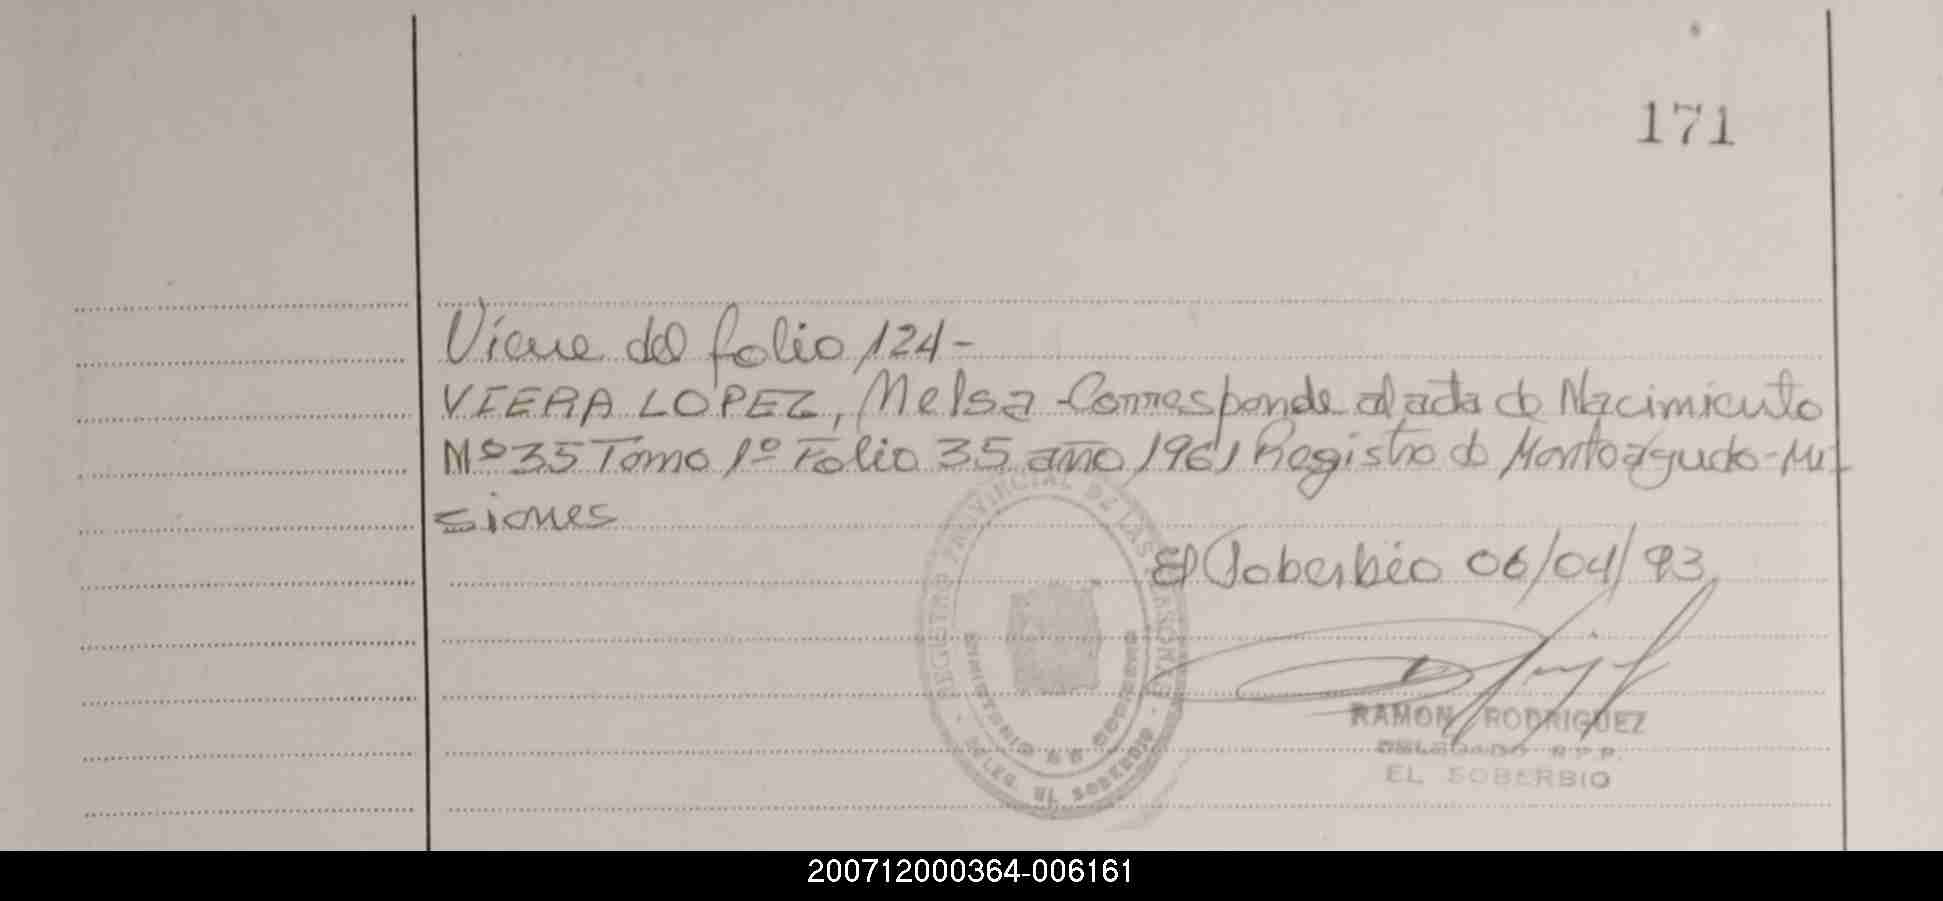 171
Viene del folio 124-
VIERA LOPEZ, Melsa - Corresponde al acta de Nacimiento
Nº 35 Tomo 1º Folio 35 año 1961 Registro de Monteagudo - Mi
siones
El Soberbio 06/04/93
REGISTRO PROVINCIAL DE LAS PERSONAS
MINISTERIO DE GOBIERNO
DELEG. EL SOBERBIO
RAMON RODRIGUEZ
DELEGADO R.P.P.
EL SOBERBIO
200712000364-006161